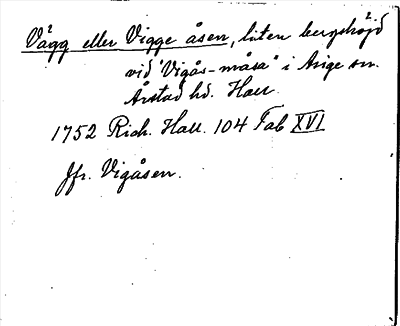 Vägg eller Vigge åsen, liten bergshöjd
vid "Vigås-måsa" i Asige sn.
Årstad hd. Hall.
1752 Rich. Hall. 104 Tab XVI
Jfr. Vigåsen.